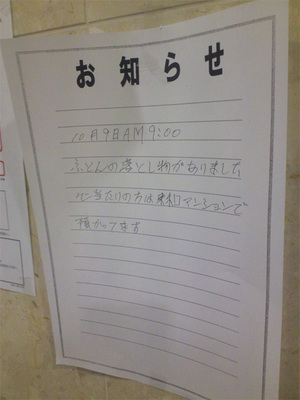 お知らせ
10月9日AM9:00
ふとんの落とし物がありました
心当たりの方は東和マンションで
預かってます